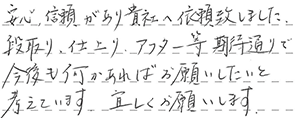 安心、信頼があり貴社へ依頼致しました。
段取り、仕上り、アフター等期待通りで
今後も何かあればお願いしたいと
考えています。宜しくお願いします。